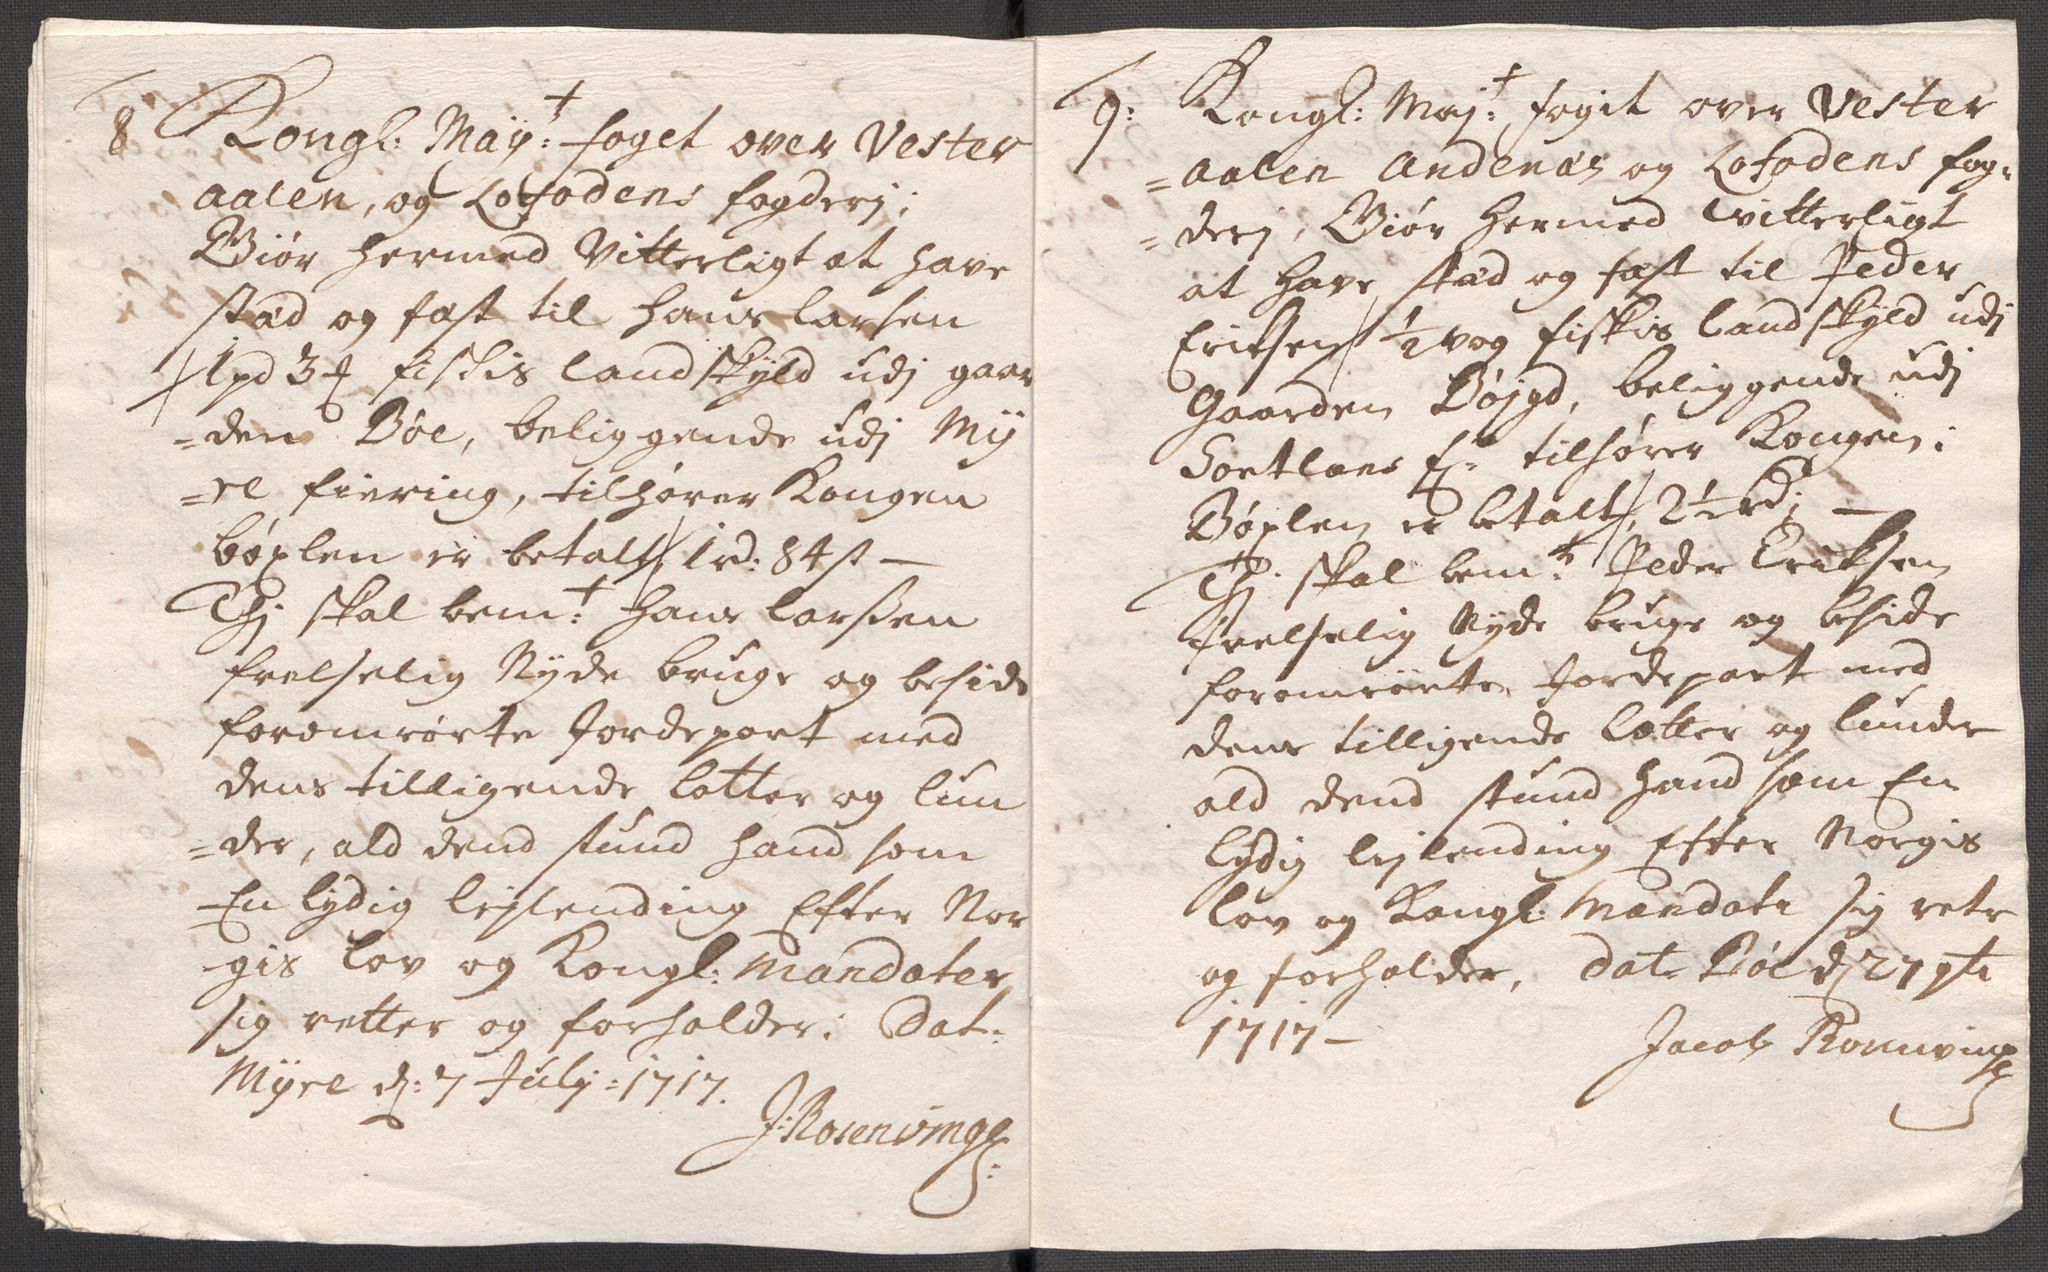 8 Kongl: Maÿ:t foget over Vester
aalen, og Lofodens fogderj;
Giör hermed Vitterligt at have
stæd og fæst til Hans Larsen
1 pd 3 # fiskis Landskÿld udj gaar
=den Böe, beliggende udj Mÿ
=re fiering, tilhörer Kongen
böxlen er betalt 1 rd: 84 s —
Thj skal bem:t Hans Larsen
frelselig Nyde bruge og beside
foromrörte Jordepart med
dens tilligende Lotter og Lun
=der, ald dend stund hand som
En lydig lejlending Efter Nor
gis Lov og Kongl: Mandater
sig retter og forholder: Dat:
Mÿre d: 7 Julÿ: 1717.
J: Rosenvinge
9: Kongl: Maj:t foget over Vester
=aalen Andenæs og Lofodens fog=
=derj, Giör hermed witterligt
at have stæd og fæst til Peder
Eriksen ½ vog fiskis Landskÿld udj
Gaarden Böjgd, beliggende udj
Sortlans f: tilhörer Kongen:
Böxlen er betalt, 2½ rd; —
Thj skal bem:t Peder Eriksen
frelselig Nyde bruge og beside
foromrörte Jordepart med
dens tilligende Lotter og lunder
ald dend stund hand som En
lydig lejlending Efter Norgis
Lov og Kongl: Mandater sig rette
og forholder, Dat: Böe d 27
1717 —
Jacob Rosenvinge